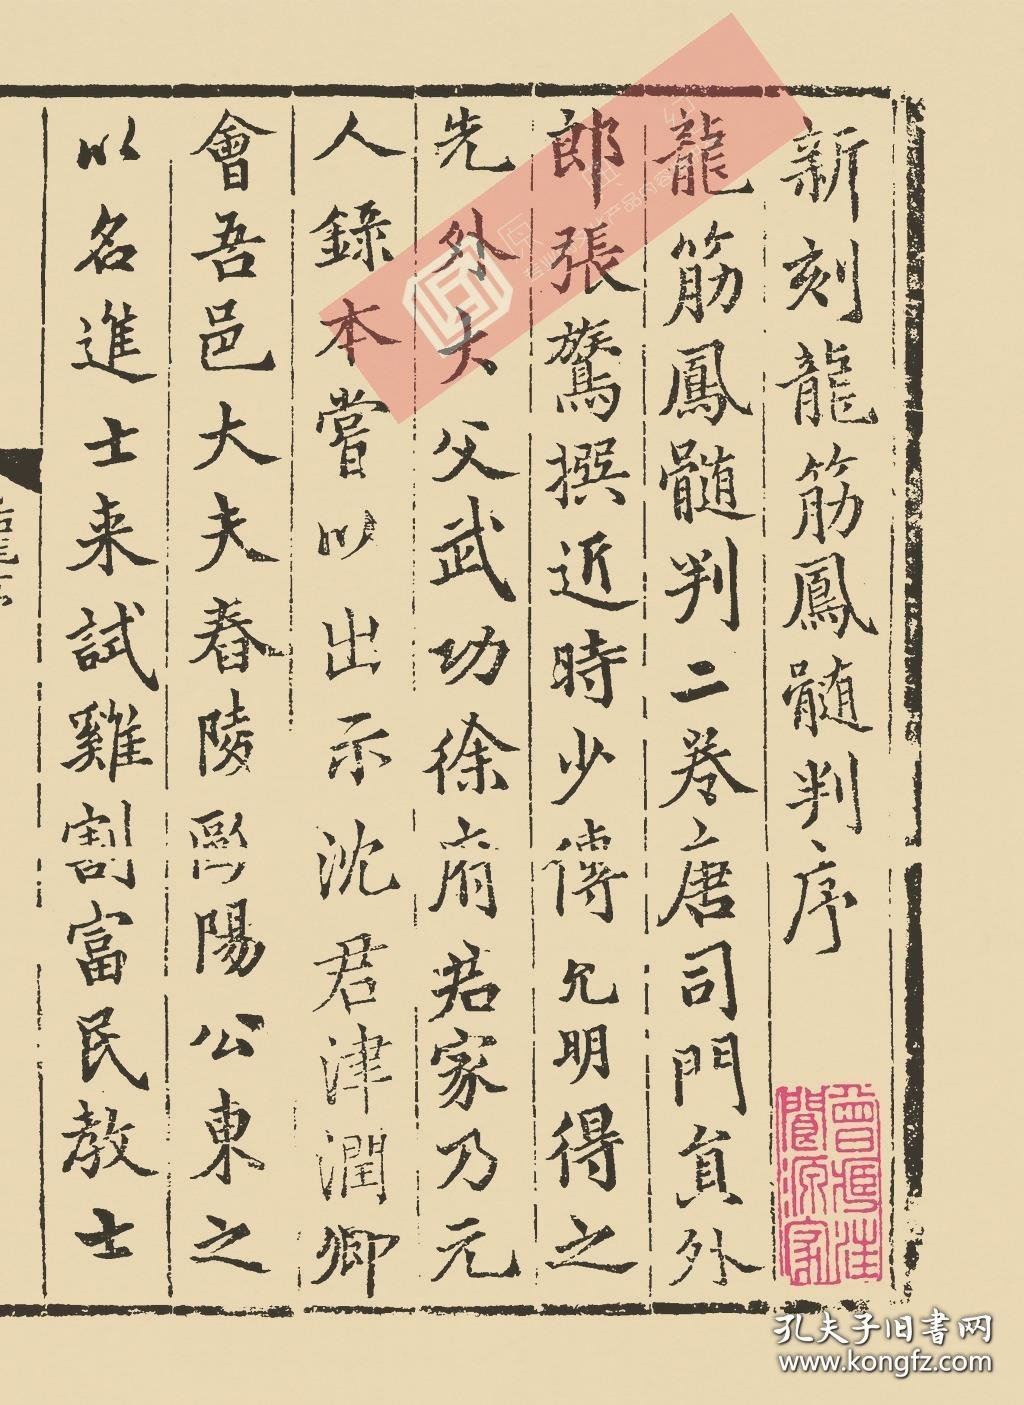 新刻龍筋鳳髓判序
龍筋鳳髓判二卷唐司門員外
郎張鷟撰近時少傳允明得之
先外大父武功徐府君家乃元
人錄本嘗以出示沈君津潤卿
會吾邑大夫舂陵歐陽公東之
以名進士来試雞割富民教士
曾在汪閬源家
孔夫子旧書网
www.kongfz.com